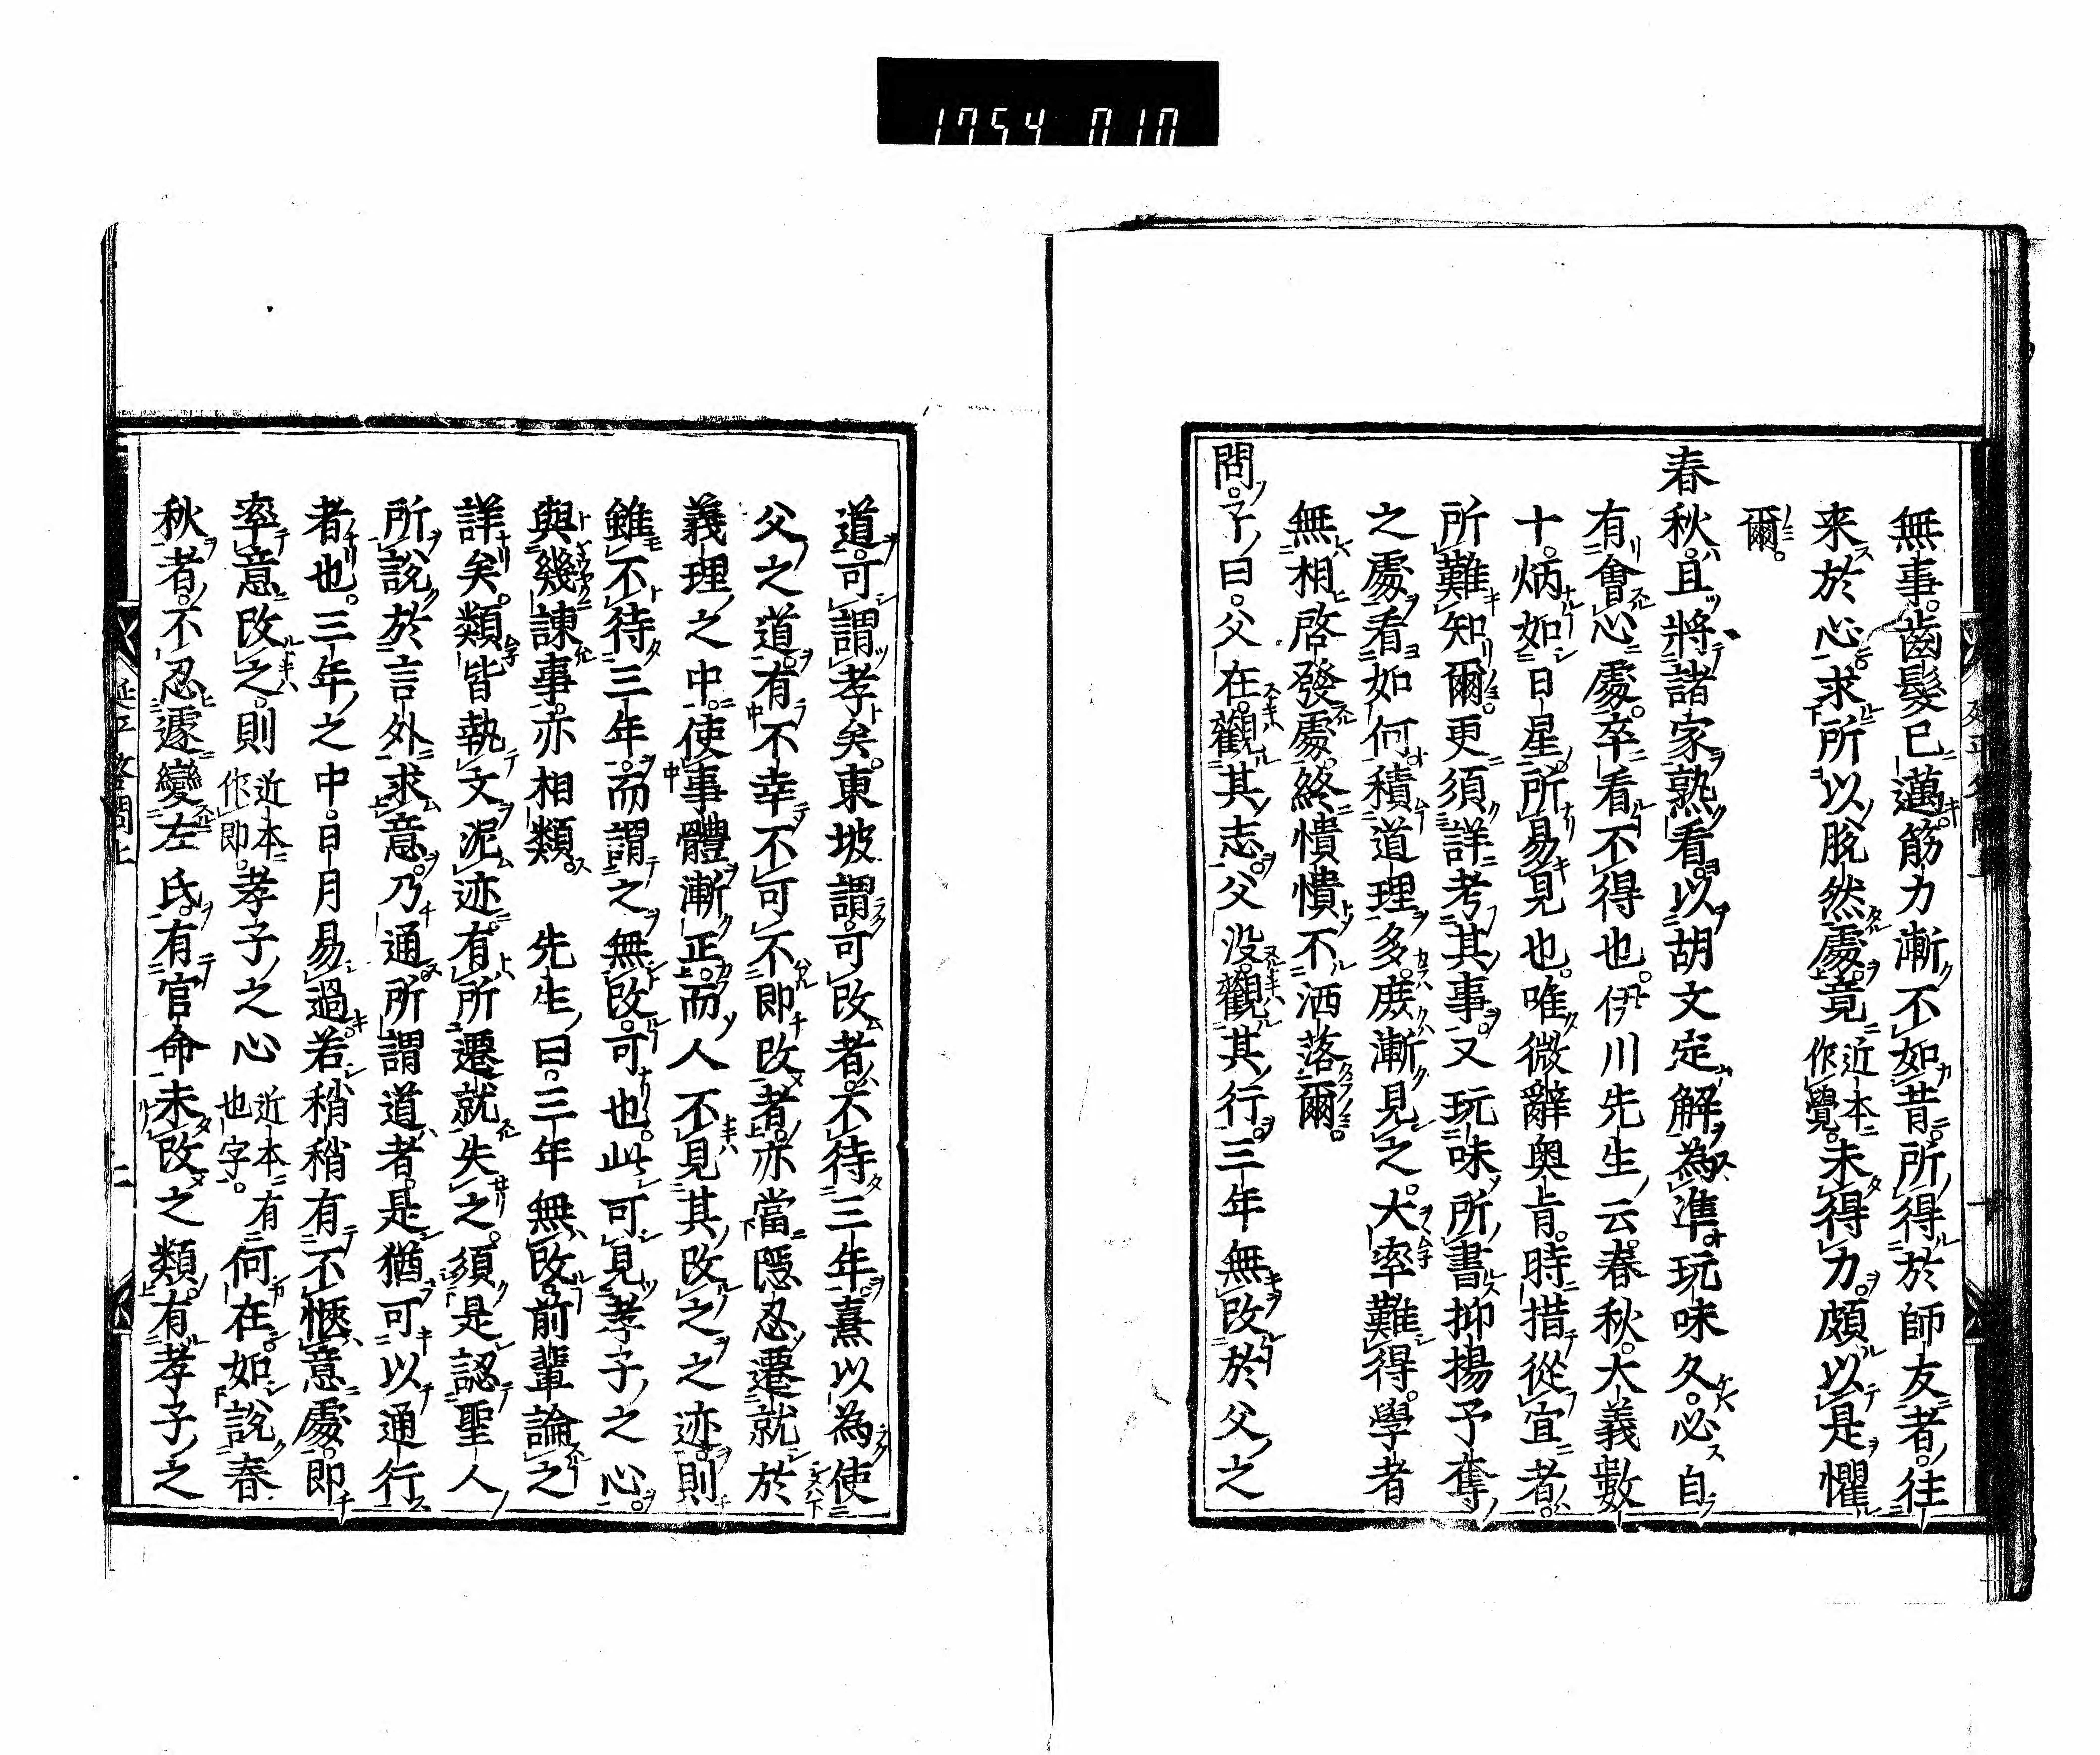 1754 010
無事。齒髮已邁筋力漸不如昔。所得於師友者。往
来於心求所以脱然處。竟近本作覺。未得力。頗以是懼
爾。
春秋。且將諸家熟看。以胡文定解為準。玩味久。必自
有會心處。卒看不得也。伊川先生云。春秋。大義數
十。炳如日星。所易見也。唯微辭奥㫖。時措從宜者。
所難知爾。更須詳考其事。又玩味所書抑揚予奪
之處。看如何。積道理多。庻漸見之。大率難得。學者
無相啓發處。終憒憒不洒落爾。
問。子曰。父在。觀其志。父没。觀其行。三年無改於父之
道。可謂孝矣。東坡謂。可改者。不待三年。熹以為使
父之道。有不幸不可不即改者。亦當隱忍遷就於
義理之中。使事體漸正。而人不見其改之之迹。則
雖不待三年。而謂之無改。可也。此可見孝子之心。
與幾諫事。亦相類。 先生曰。三年無改。前輩論之
詳矣。類皆執文泥迹。有所遷就失之。須是認聖人
所説於言外求意。乃通所謂道者。是猶可以通行
者也。三年之中。日月易過。若稍稍有不愜意處。即
率意改之。則近本作即。孝子之心近本有也字。何在。如説春
秋者。不忍遽變左氏。有官命未改之類。有孝子之
延平答問上
二